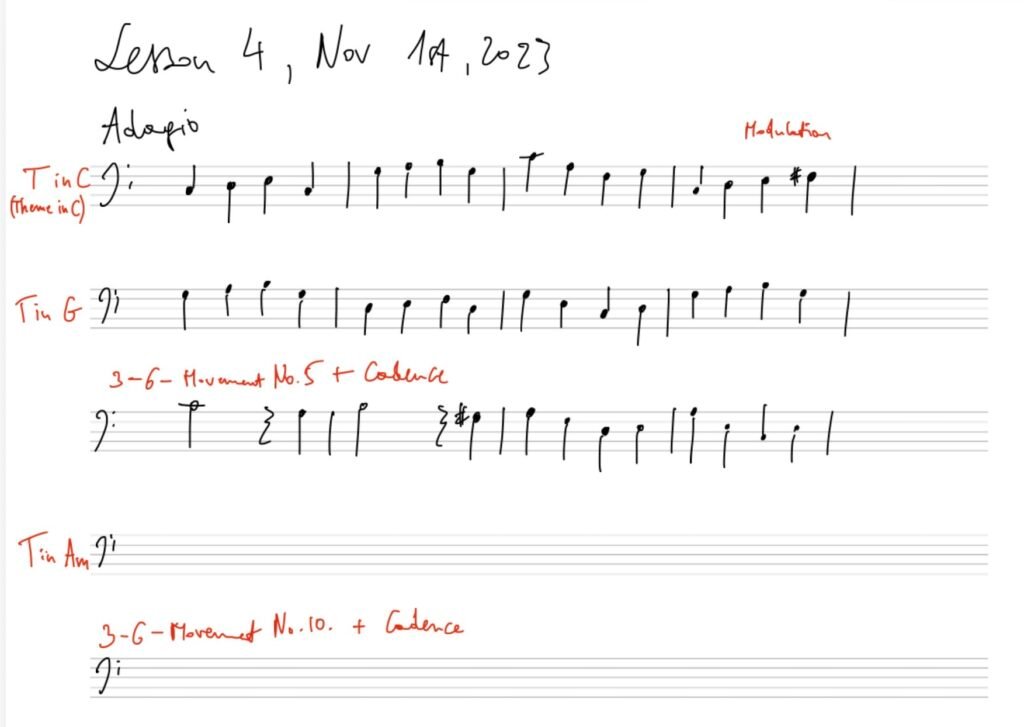 Lesson 4, Nov 1st, 2023
Adagio
Modulation
T in C
(Theme in C)
T in G
3-6-Movement No.5 + Cadence
T in Am
3-6-Movement No.10. + Cadence